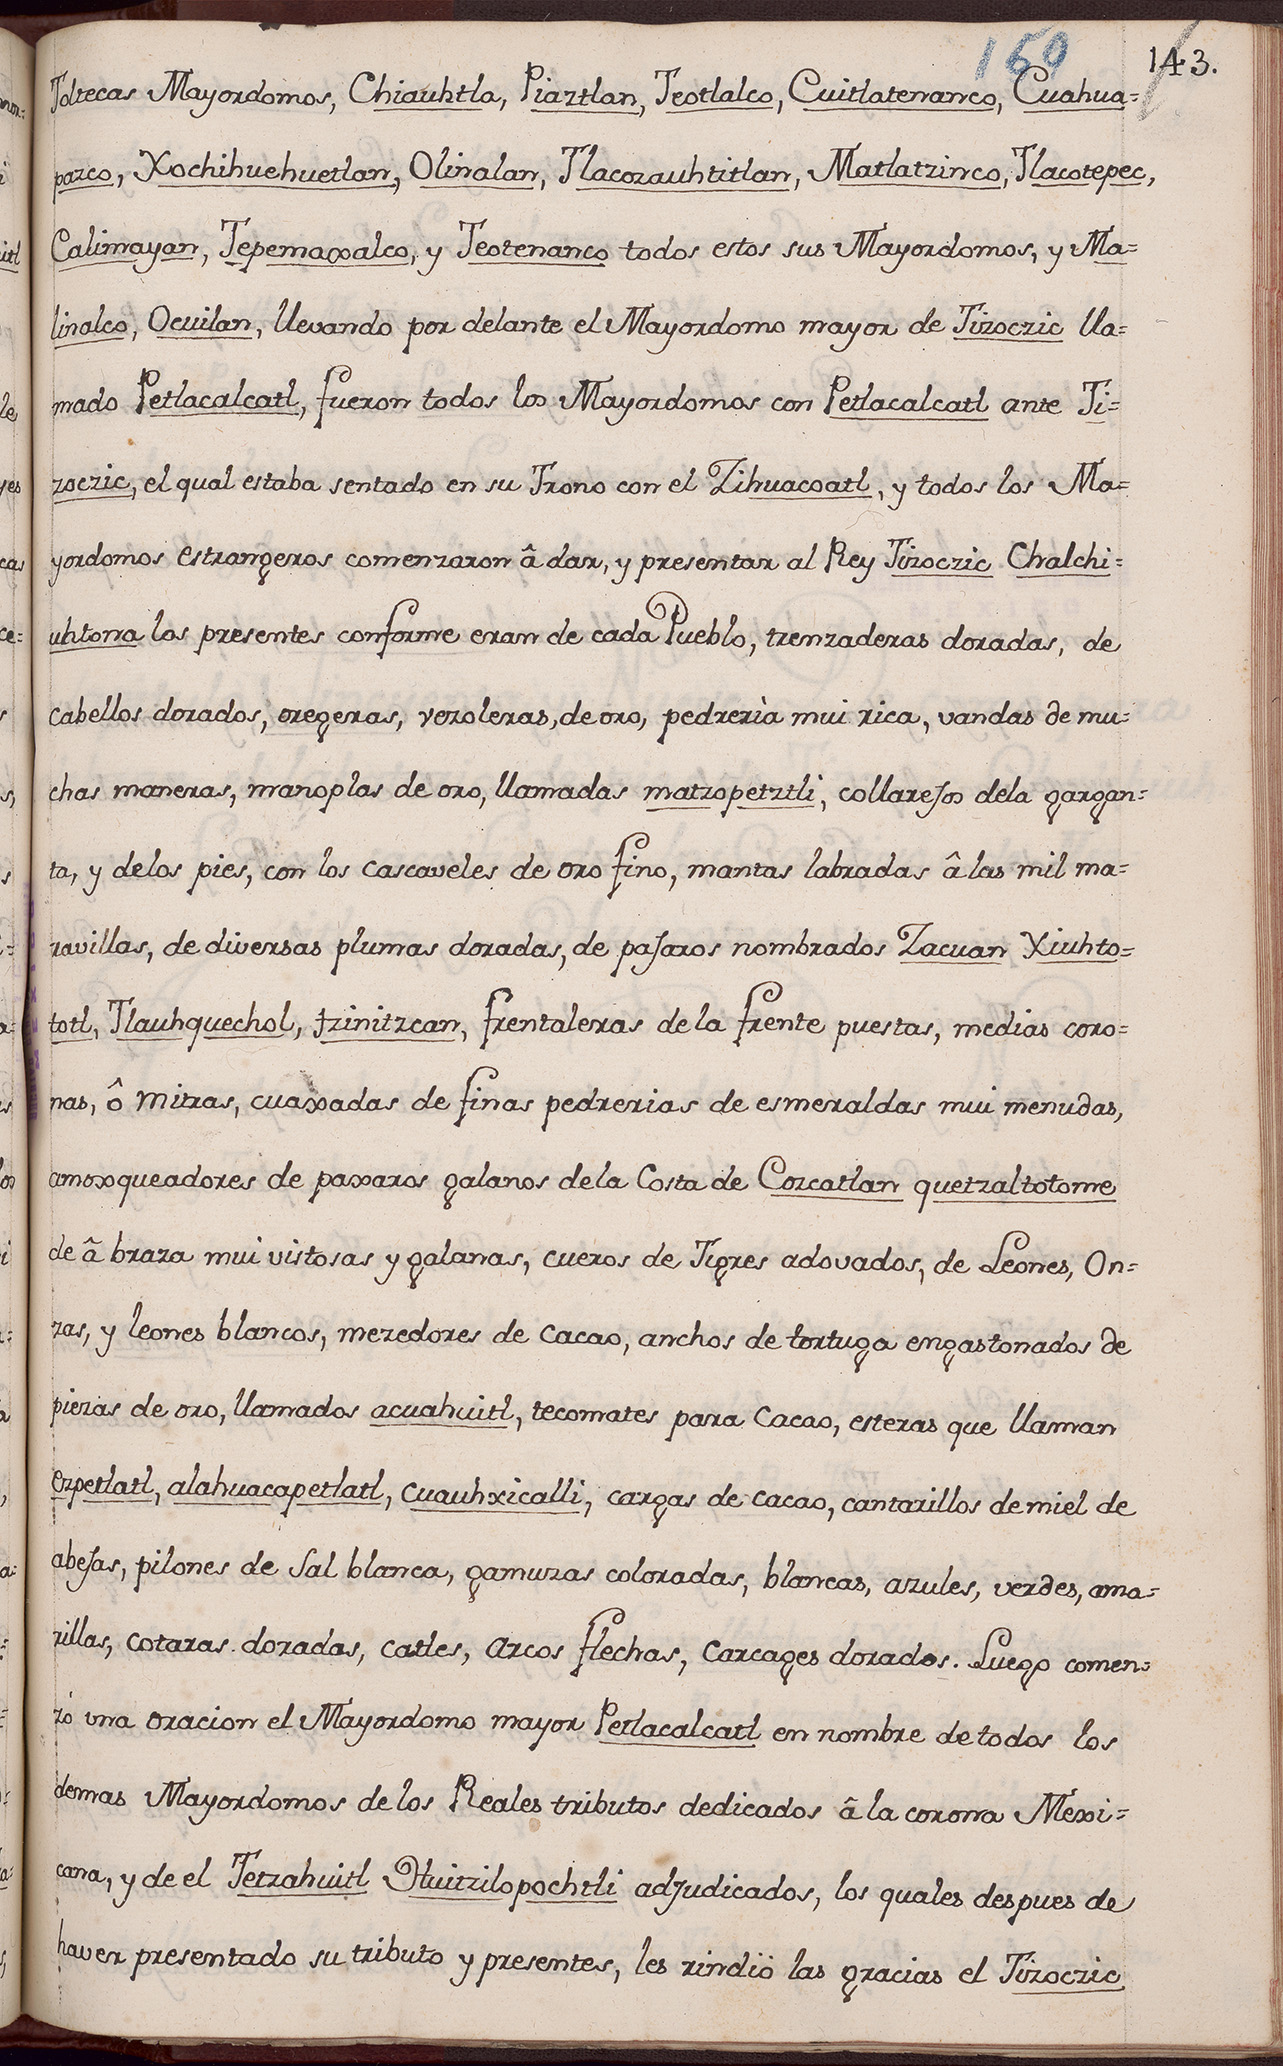 150 143.
Toltecas Mayordomos, Chiauhtla, Piaztlan, Teotlalco, Cuitlatenanco, Cuahua=
pazco, Xochihuehuetlan, Olinalan, Tlacozauhtitlan, Matlatzinco, Tlacotepec,
Calimayan, Tepemaxalco, y Teotenanco todos estos sus Mayordomos, y Ma=
linalco, Ocuilan, llevando por delante el Mayordomo mayor de Tizoczic lla=
mado Petlacalcatl, fueron todos los Mayordomos con Petlacalcatl ante Ti=
zoczic, el qual estaba sentado en su Trono con el Zihuacoatl, y todos los Ma=
yordomos estrangeros comenzaron â dar, y presentar al Rey Tizoczic Chalchi=
uhtona los presentes conforme eran de cada Pueblo, trenzaderas doradas, de
cabellos dorados, oregeras, vezoleras, de oro, pedrerìa mui rica, vandas de mu=
chas maneras, manoplas de oro, llamadas matzopetztli, collarejos dela gargan=
ta, y delos pies, con los cascaveles de oro fino, mantas labradas â las mil ma=
ravillas, de diversas plumas doradas, de pajaros nombrados Zacuan Xiuhto=
totl, Tlauhquechol, tzinitzcan, frentaleras de la frente puestas, medias coro=
nas, ô mitras, cuaxadas de finas pedrerias de esmeraldas mui menudas,
amoxqueadores de paxaros galanos dela Costa de Cozcatlan quetzaltotome
de â braza mui vistosas y galanas, cueros de Tigres adovados, de Leones, On=
zas, y leones blancos, mezedores de cacao, anchos de tortuga engastonados de
piezas de oro, llamados acuahuitl, tecomates para Cacao, esteras que llaman
ezpetlatl, alahuacapetlatl, cuauhxicalli, cargas de cacao, cantarillos de miel de
abejas, pilones de Sal blanca, gamuzas coloradas, blancas, azules, verdes, ama=
rillas, cotaras doradas, catles, arcos flechas, carcages dorados. Luego comen=
zó una oracion el Mayordomo mayor Petlacalcatl en nombre de todos los
demas Mayordomos de los Reales tributos dedicados â la corona Mexi=
cana, y de el Tetzahuitl Huitzilopochtli adjudicados, los quales despues de
haver presentado su tributo y presentes, les rindiò las gracias el Tizoczic